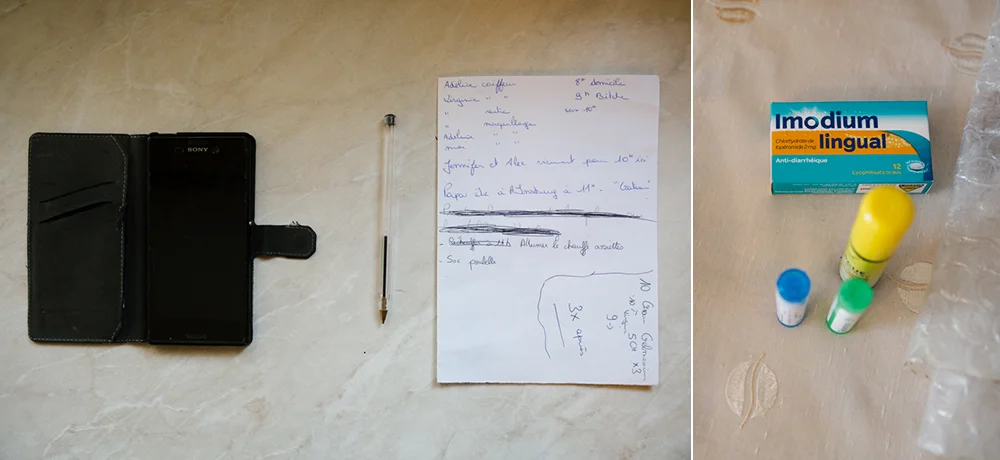 SONY
Adeline coiffeur 8h domicile
Virginie " " 9h Bitche
" sortie 10h
" maquillage
Adeline " "
moi " "
Jennifer et Alex viennent pour 10h ici
Papa à à 11h.
- 11h Allumer le chauffe assiettes
- Sac poubelle
10
5CH x3
9h
3x après
Imodium
lingual
Chlorhydrate de
lopéramide 2 mg
Anti-diarrhéique
12
Lyophilisats oraux